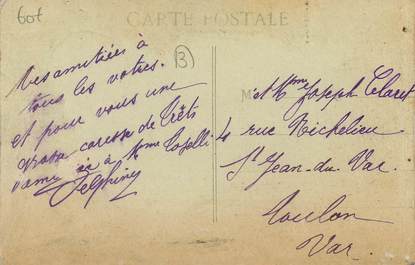 60t
CARTE POSTALE
B
Mes amitiées à
tous les votres.
et pour vous une
grosse caresse de
amie à Mme Roselli
Delphine
M et Mme Joseph Claret
4 rue Richelieu
St Jean du Var.
Toulon
Var.